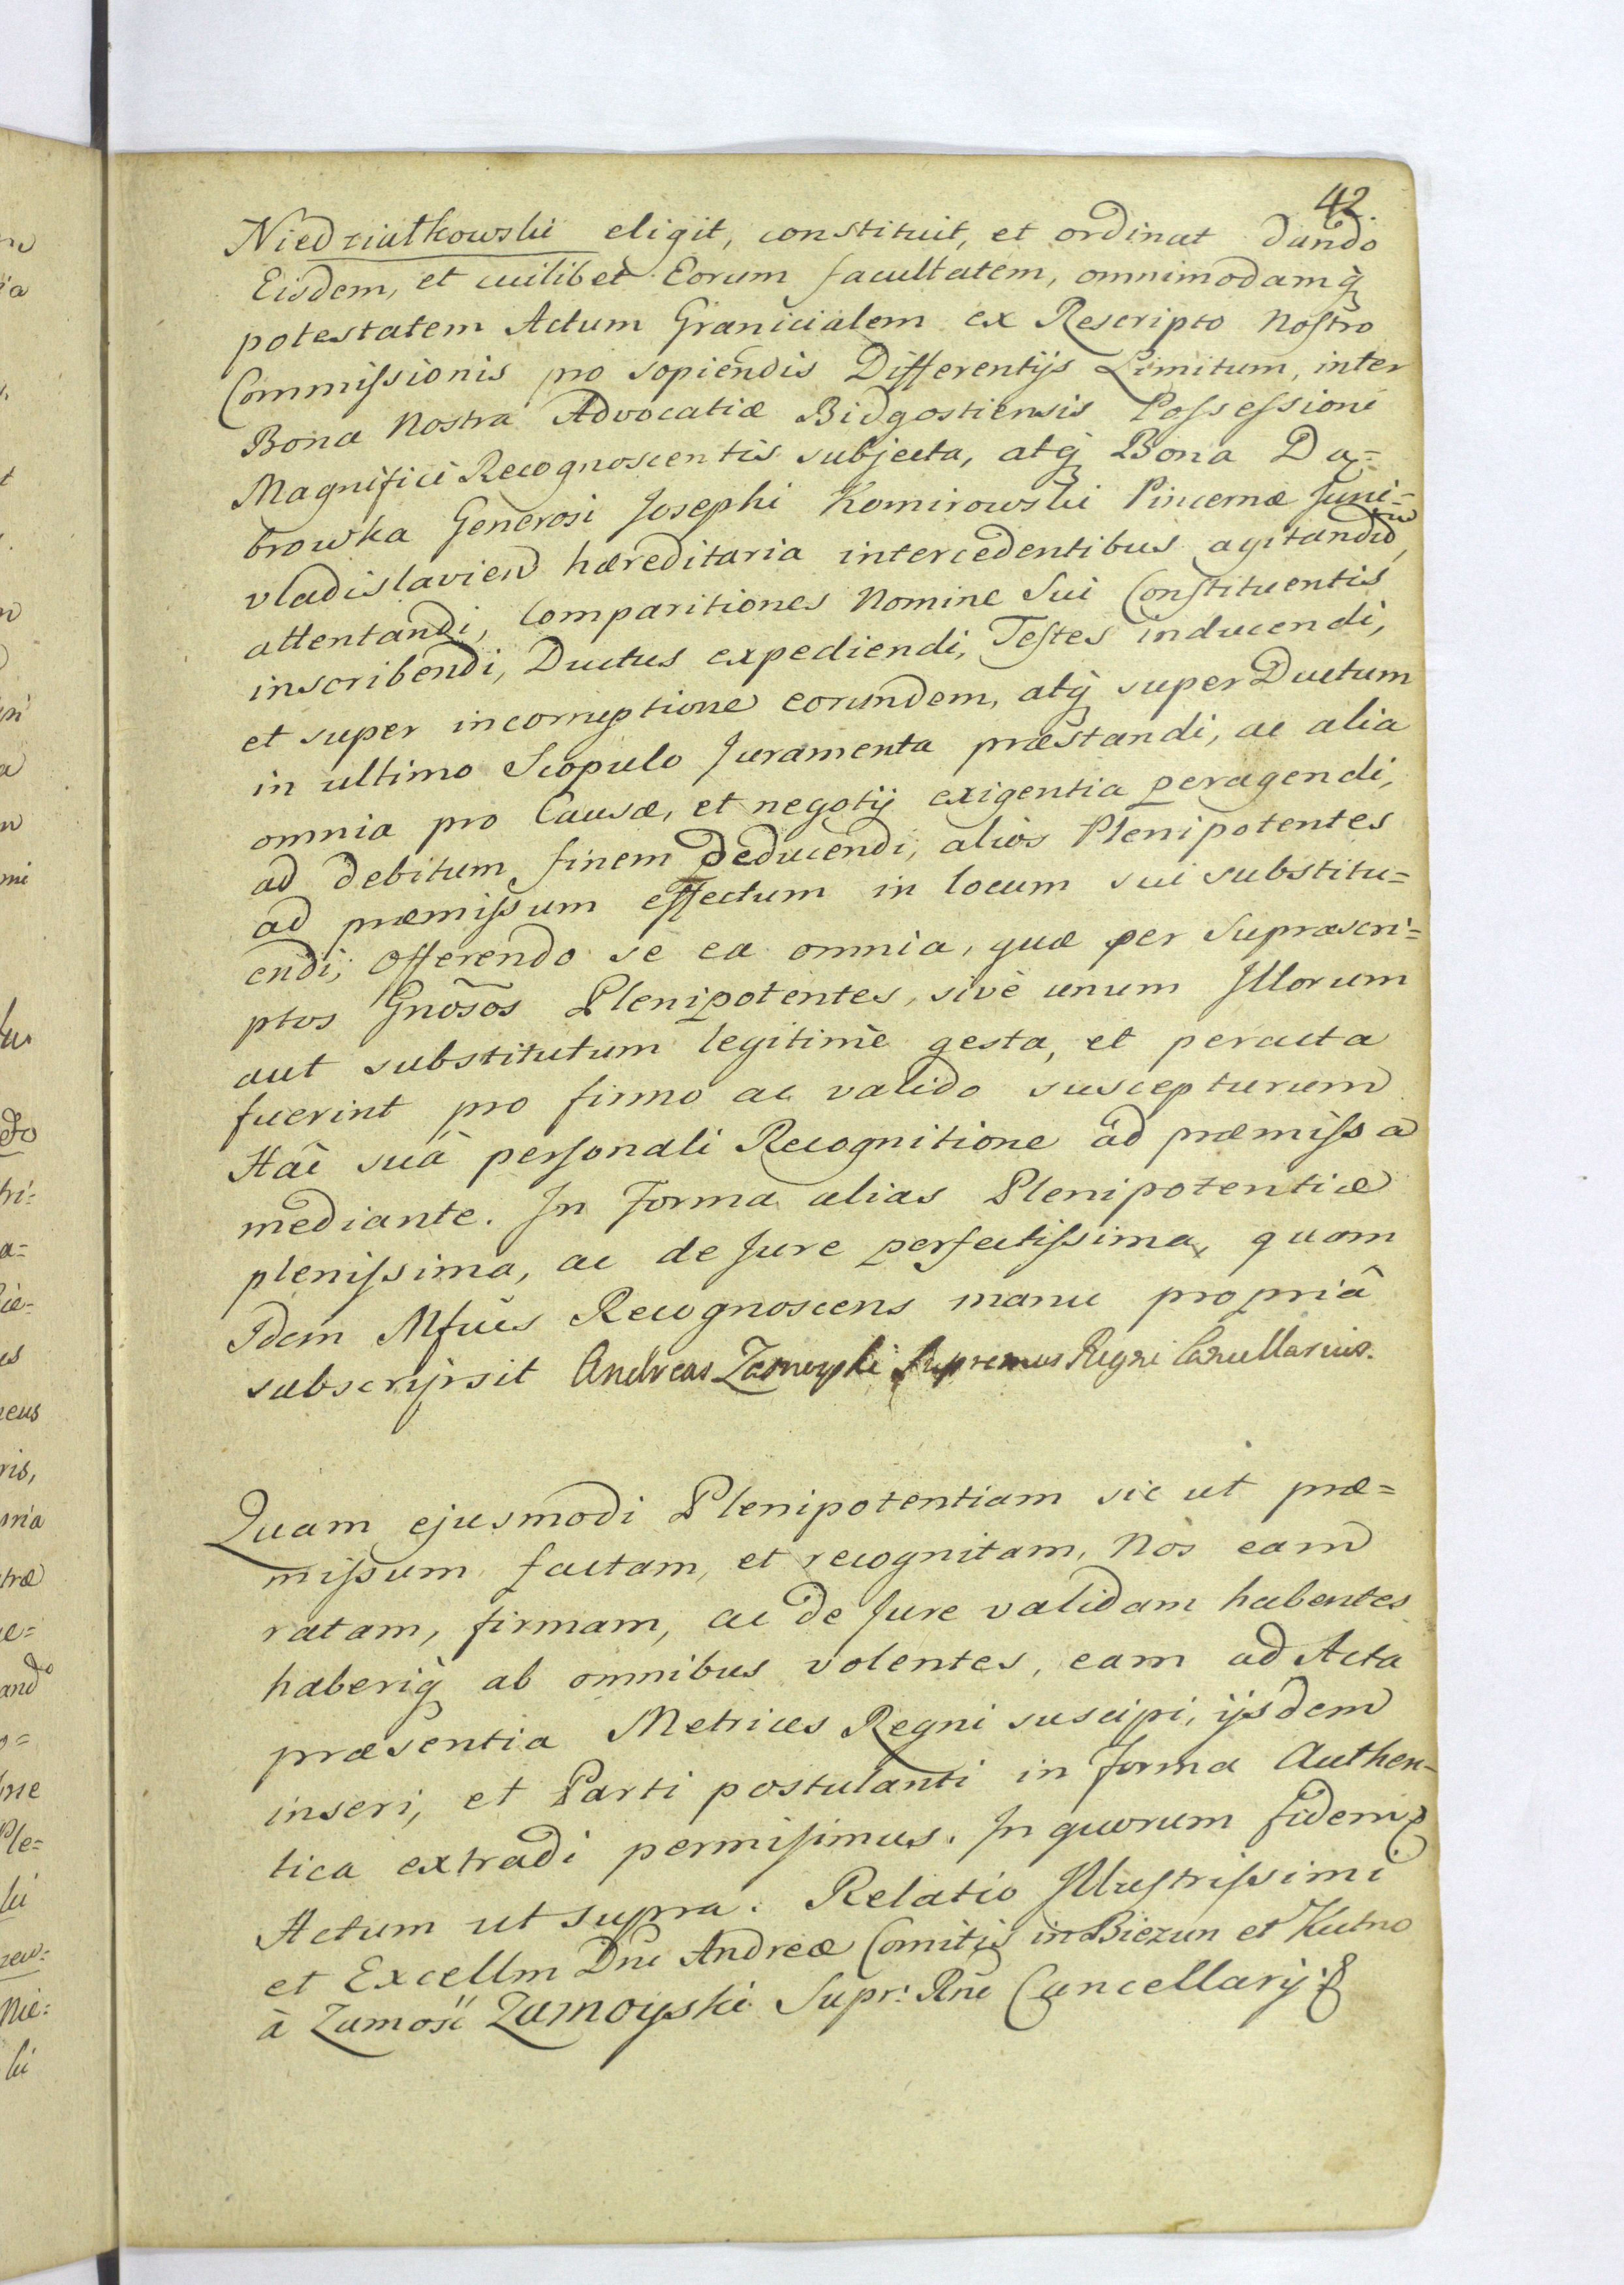 42.
Niedziałkowski eligit, constituit, et ordinat dando
Eisdem, et cuilibet Eorum facultatem, omnimodamq̃
potestatem Actum Granicialem ex Rescripto Nostro
Commissionis pro sopiendis Differentijs Limitum, inter
Bona Nostra Advocatiæ Bidgostiensis Possessioni
Magnifici Recognoscentis subjecta, atq̃ Bona Da=
browka Generosi Josephi Komirowski Pincernæ Juni=
vladislavien hæreditaria intercedentibus agitandi,
attentandi, Comparitiones Nomine Sui Constituentis
inscribendi, Ductus expediendi, Testes inducendi,
et super incorruptione eorundem, atq̃ super Ductum
in ultimo Scopulo Juramenta præstandi, ac alia
omnia pro Causæ, et negotij exigentia peragendi,
ad debitum finem deducendi, alios Plenipotentes
ad præmissum effectum in locum sui substitu=
endi; Offerendo se ea omnia, quæ per Supræscri=
ptos Gnõsos Plenipotentes, sivè unum Illorum
aut substitutum legitimè gesta, et peracta
fuerint pro firmo ac valido suscepturum
Hâc suâ personali Recognitione ad præmissa
mediante. In Forma alias Plenipotentiæ
plenissima, ac de Jure perfectissima, quam
Idem Mfũus Recognoscens manu propriâ
subscripsit Andreas Zamoyski Supremus Regni Cancellarius.
Quam ejusmodi Plenipotentiam sic ut præ=
missum factam, et recognitam, Nos eam
ratam, firmam, ac de Jure validam habentes
haberiq̃ ab omnibus volentes, eam ad Acta
præsentia Metrices Regni suscipi, ijsdem
inseri, et Parti postulanti in forma Authen-
tica extradi permisimus. In quorum fidem
Actum ut supra. Relatio Illustrissimi
et Excellm Dñi Andreæ Comitis in Biezun et Kutno
à Zamość Zamoyski Supr: Rñi Cancellarij